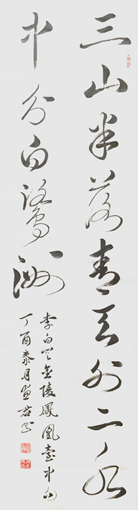 三山半落青天外二水
中分白鹭洲
李白登金陵凤凰台中句
丁酉泰月